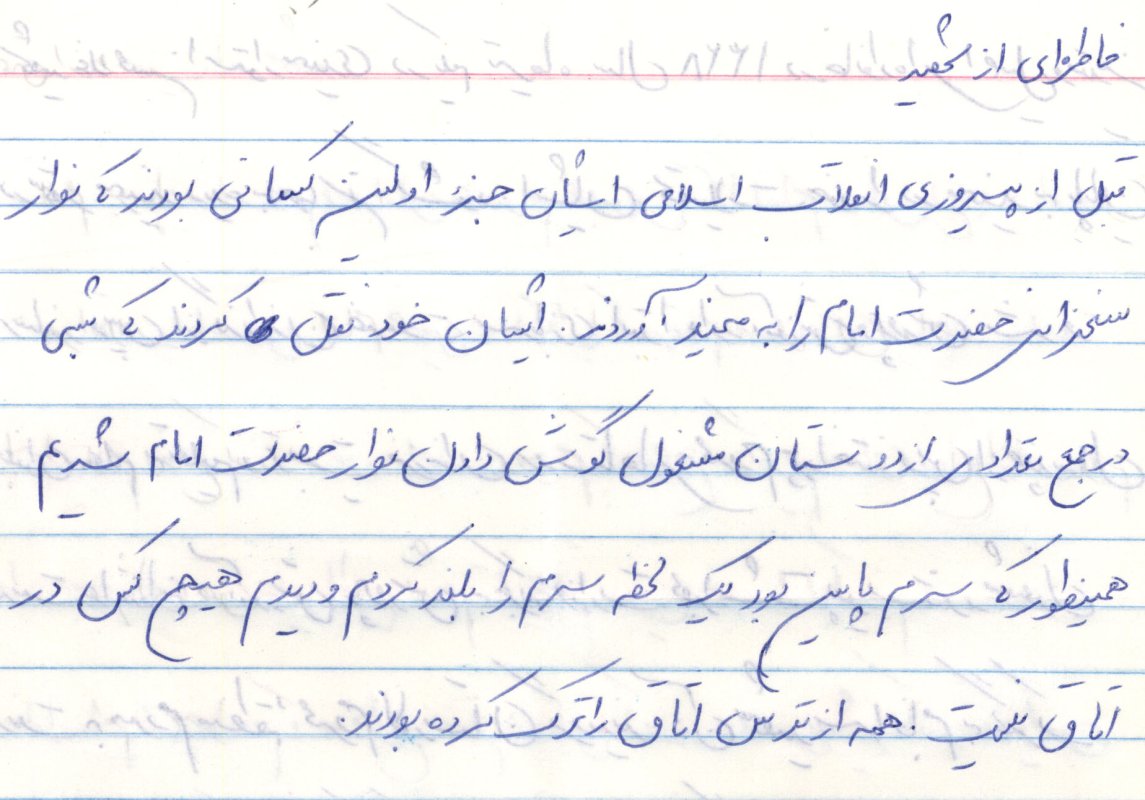 خاطره‌ای از شهید
قبل از پیروزی انقلاب اسلامی ایشان جزء اولین کسانی بودند که نوار
سخنرانی حضرت امام را به میبد آوردند. ایشان خود نقل کردند که شبی
در جمع تعدادی از دوستان مشغول گوش دادن نوار حضرت امام شدیم
همینطور که سرم پایین بود یک لحظه سرم را بلند کردم و دیدم هیچ کس در
اتاق نیست. همه از ترس اتاق را ترک کرده بودند.